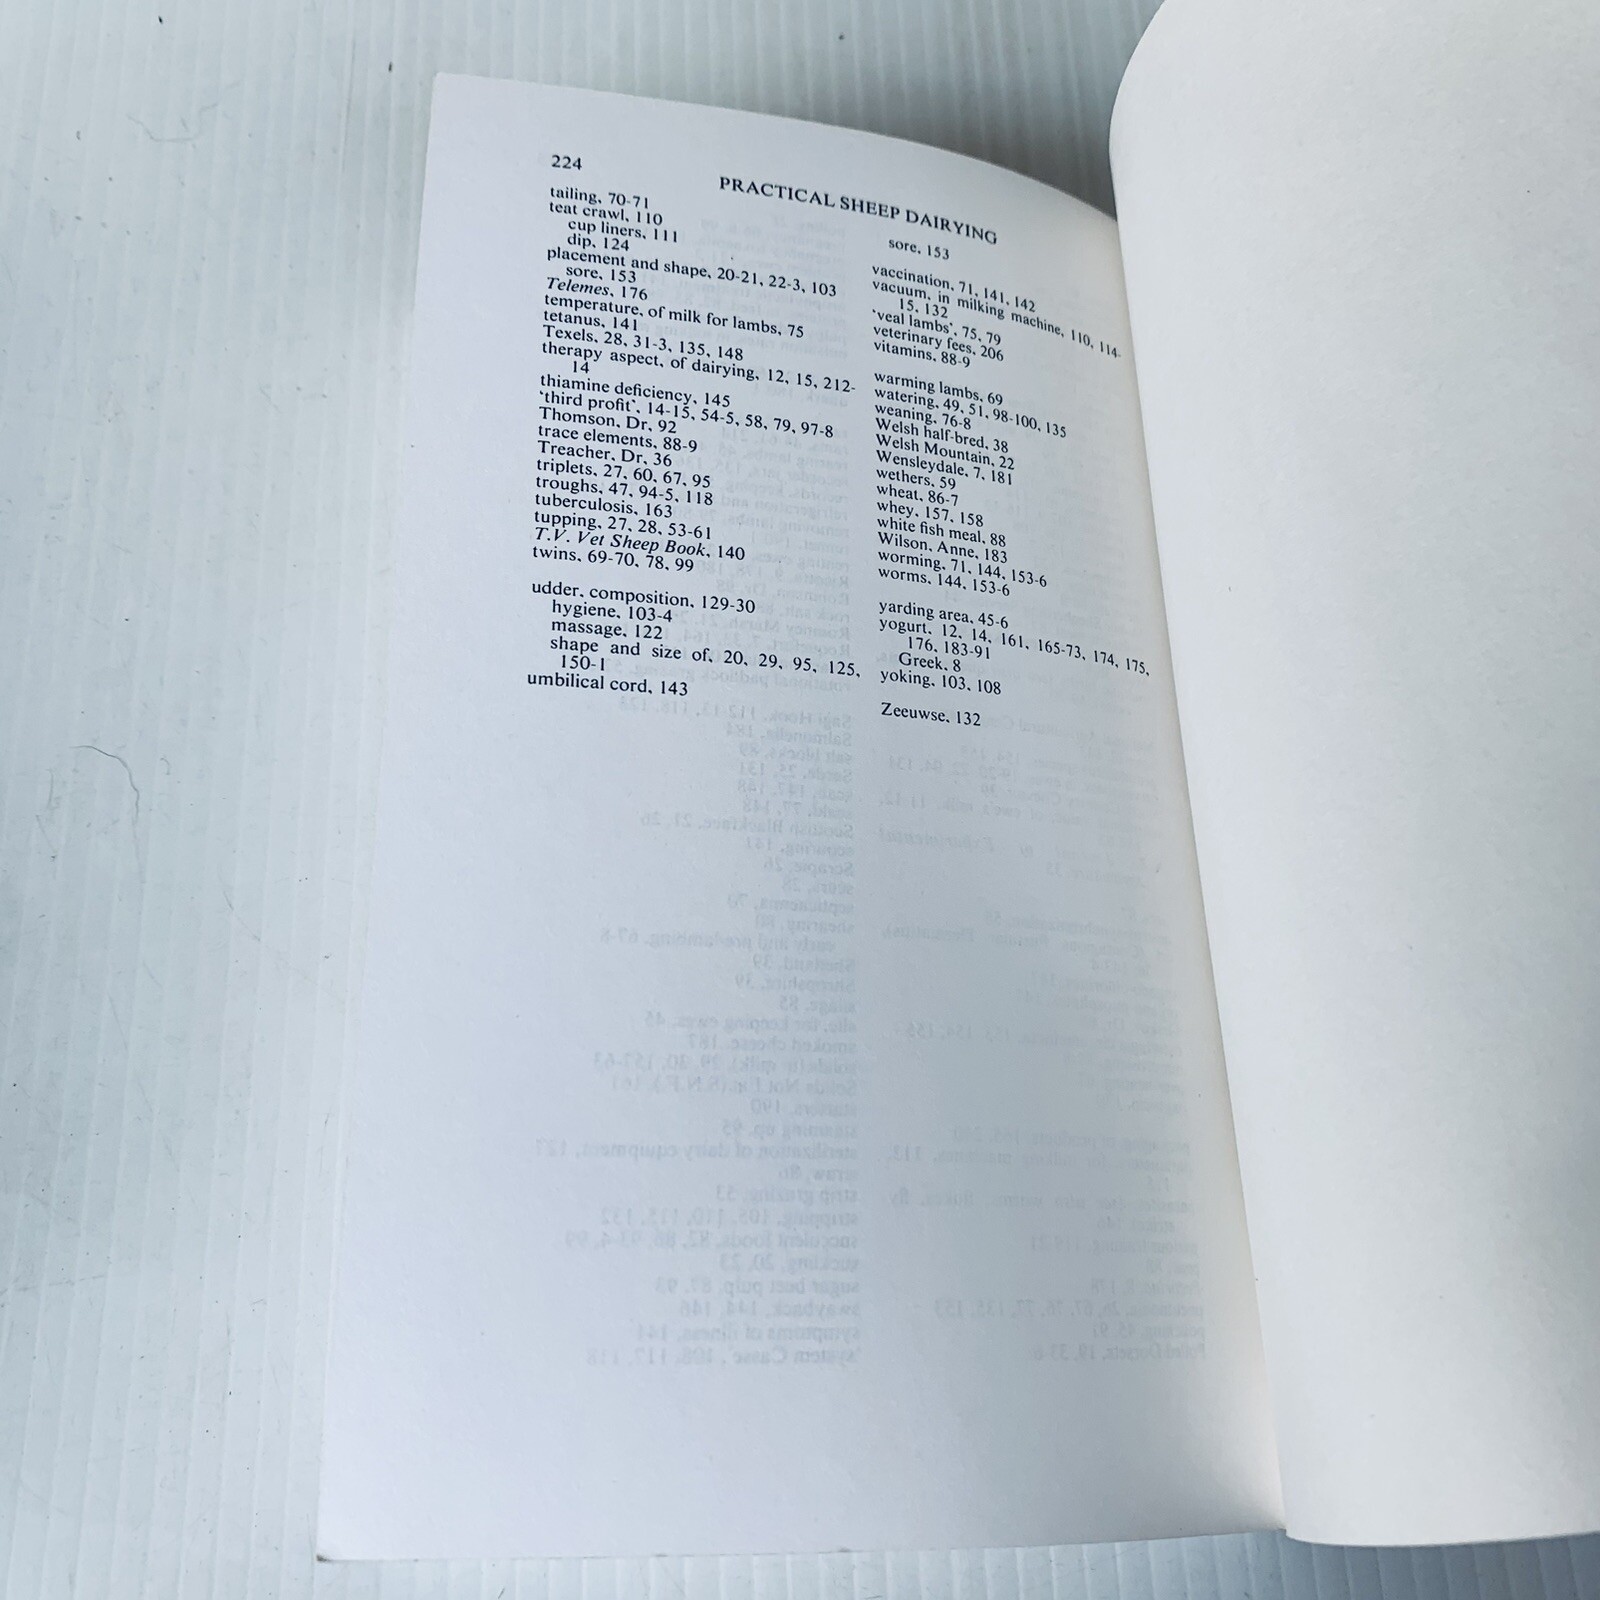 224
PRACTICAL SHEEP DAIRYING
tailing, 70-71
teat crawl, 110
cup liners, 111
dip, 124
placement and shape, 20-21, 22-3, 103
sore, 153
Telemes, 176
temperature, of milk for lambs, 75
tetanus, 141
Texels, 28, 31-3, 135, 148
therapy aspect, of dairying, 12, 15, 212-
14
thiamine deficiency, 145
'third profit', 14-15, 54-5, 58, 79, 97-8
Thomson, Dr, 92
trace elements, 88-9
Treacher, Dr, 36
triplets, 27, 60, 67, 95
troughs, 47, 94-5, 118
tuberculosis, 163
tupping, 27, 28, 53-61
T.V. Vet Sheep Book, 140
twins, 69-70, 78, 99
udder, composition, 129-30
hygiene, 103-4
massage, 122
shape and size of, 20, 29, 95, 125,
150-1
umbilical cord, 143
sore, 153
vaccination, 71, 141, 142
vacuum, in milking machine, 110, 114-
15, 132
'veal lambs', 75, 79
veterinary fees, 206
vitamins, 88-9
warming lambs, 69
watering, 49, 51, 98-100, 135
weaning, 76-8
Welsh half-bred, 38
Welsh Mountain, 22
Wensleydale, 7, 181
wethers, 59
wheat, 86-7
whey, 157, 158
white fish meal, 88
Wilson, Anne, 183
worming, 71, 144, 153-6
worms, 144, 153-6
yarding area, 45-6
yogurt, 12, 14, 161, 165-73, 174, 175,
176, 183-91
Greek, 8
yoking, 103, 108
Zeeuwse, 132